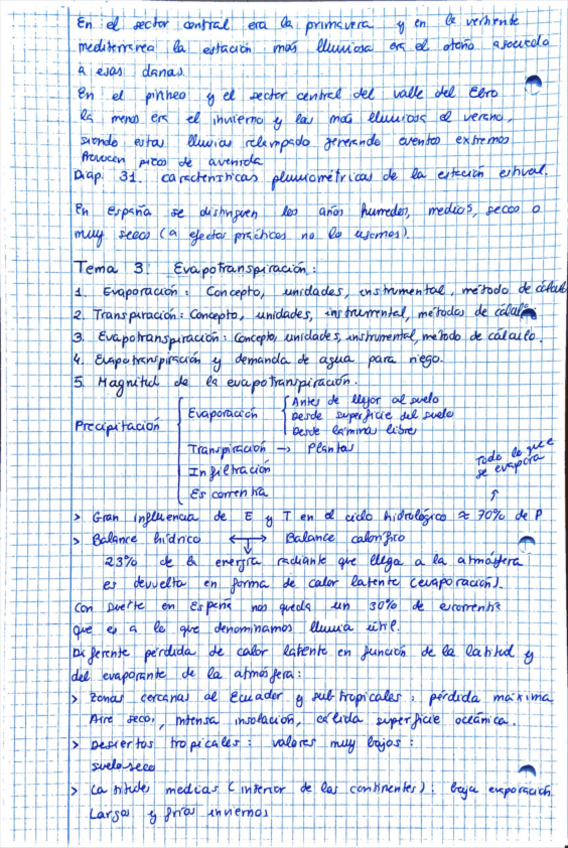 En el sector central era la primavera y en la vertiente
mediterranea la estación más lluviosa era el otoño asociado
a esas danas.
En el pirineo y el sector central del valle del Ebro
la menos era el invierno y las más lluviosa el verano,
siendo estas lluvias relampado generando eventos extremos
Provocan picos de avenida
Diap. 31. características pluviométricas de la estación estival.
En españa se distinguen los años humedos, medios, secos o
muy secos (a efectos prácticos no lo usamos).
Tema 3. Evapotranspiración:
1. Evaporación: Concepto, unidades, instrumental, método de cálculo
2. Transpiración: Concepto, unidades, instrumental, métodos de cálculo
3. Evapotranspiración: Concepto, unidades, instrumental, método de cálculo.
4. Evapotranspiración y demanda de agua para riego.
5. Magnitud de la evapotranspiración.
Precipitación
Evaporación
Antes de llegar al suelo
Desde superficie del suelo
Desde lámina libre
Transpiración → Plantas
Infiltración
Escorrentia
Todo lo que se evapora
↑
> Gran influencia de E y T en el ciclo hidrológico ≈ 70% de P
> Balance hídrico ↔ Balance calorífico
23% de la energía radiante que llega a la atmósfera
es devuelta en forma de calor latente (evaporación).
Con suerte en España nos queda un 30% de escorrentía
que es a lo que denominamos lluvia útil.
Diferente pérdida de calor latente en función de la latitud y
del evaporante de la atmósfera:
> Zonas cercanas al Ecuador y subtropicales: pérdida máxima
Aire seco, intensa insolación, cálida superficie oceánica.
> Desiertos tropicales: valores muy bajos:
suelo seco
> Latitudes medias (interior de los continentes): baja evaporación
Largos y fríos inviernos